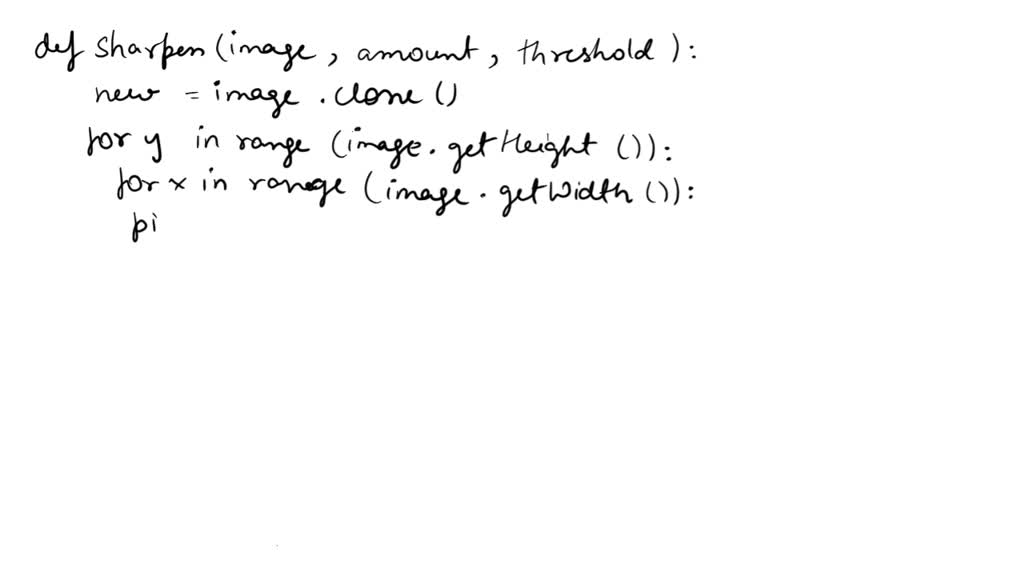 def sharpen (image, amount, threshold):
new = image.clone ()
for y in range (image.getHeight ()):
for x in range (image.getWidth ()):
pi